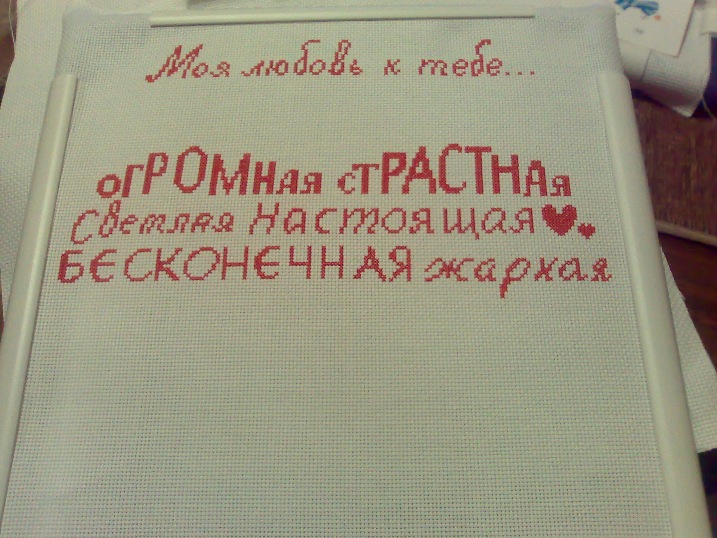 Моя любовь к тебе...
оГРОМНая сТРАСТНАя
Светлая Настоящая
БЕСКОНЕЧНАЯ жаркая